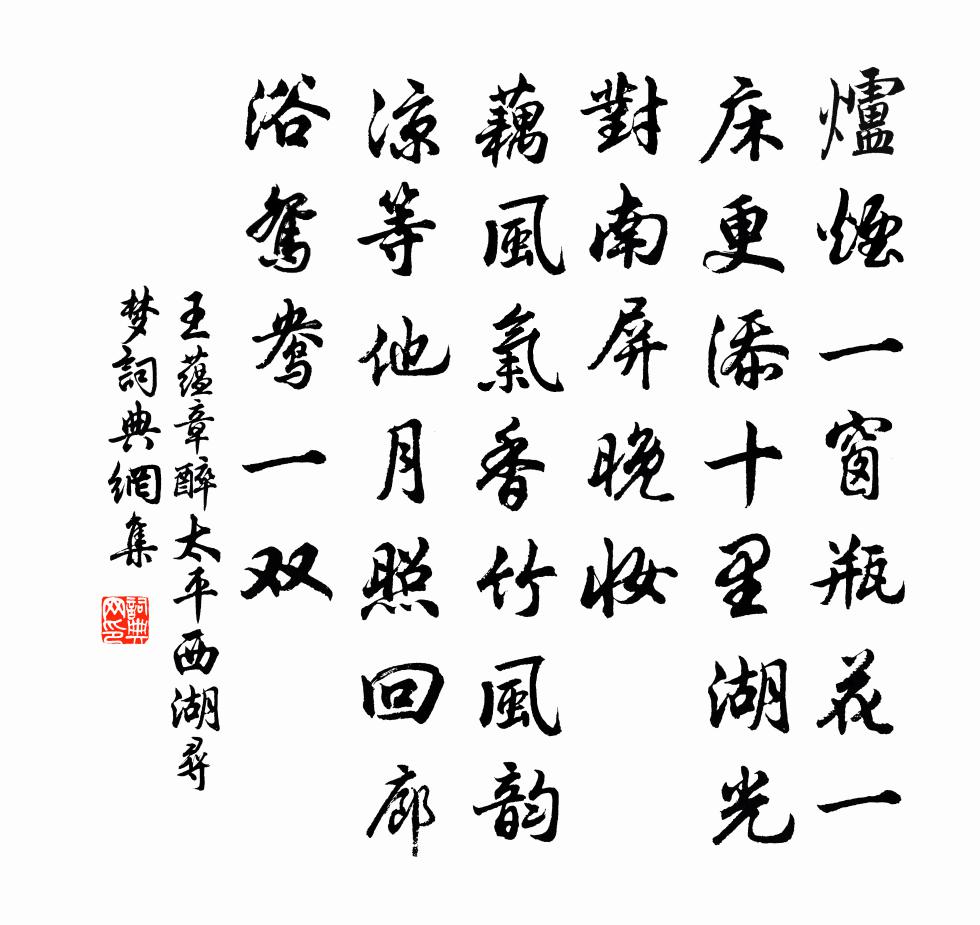 爐煙一窗瓶花一
床更添十里湖光
對南屏晚妝
藕風氣香竹風韵
涼等他月照回廊
浴鴛鴦一双
王蕴章醉太平西湖尋
梦詞典網集
詞典
网印